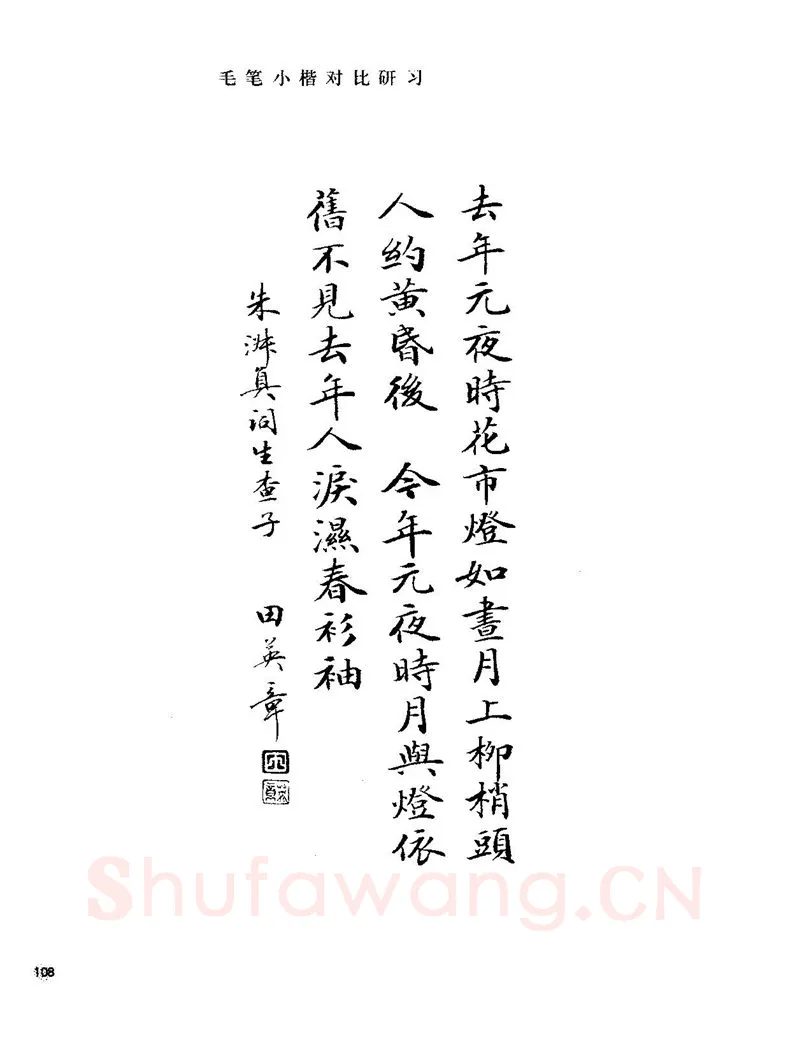 毛笔小楷对比研习
去年元夜時花市燈如晝月上柳梢頭
人約黃昏後 今年元夜時月與燈依
舊不見去年人淚濕春衫袖
朱淑真词生查子 田英章
Shufawang.CN
108